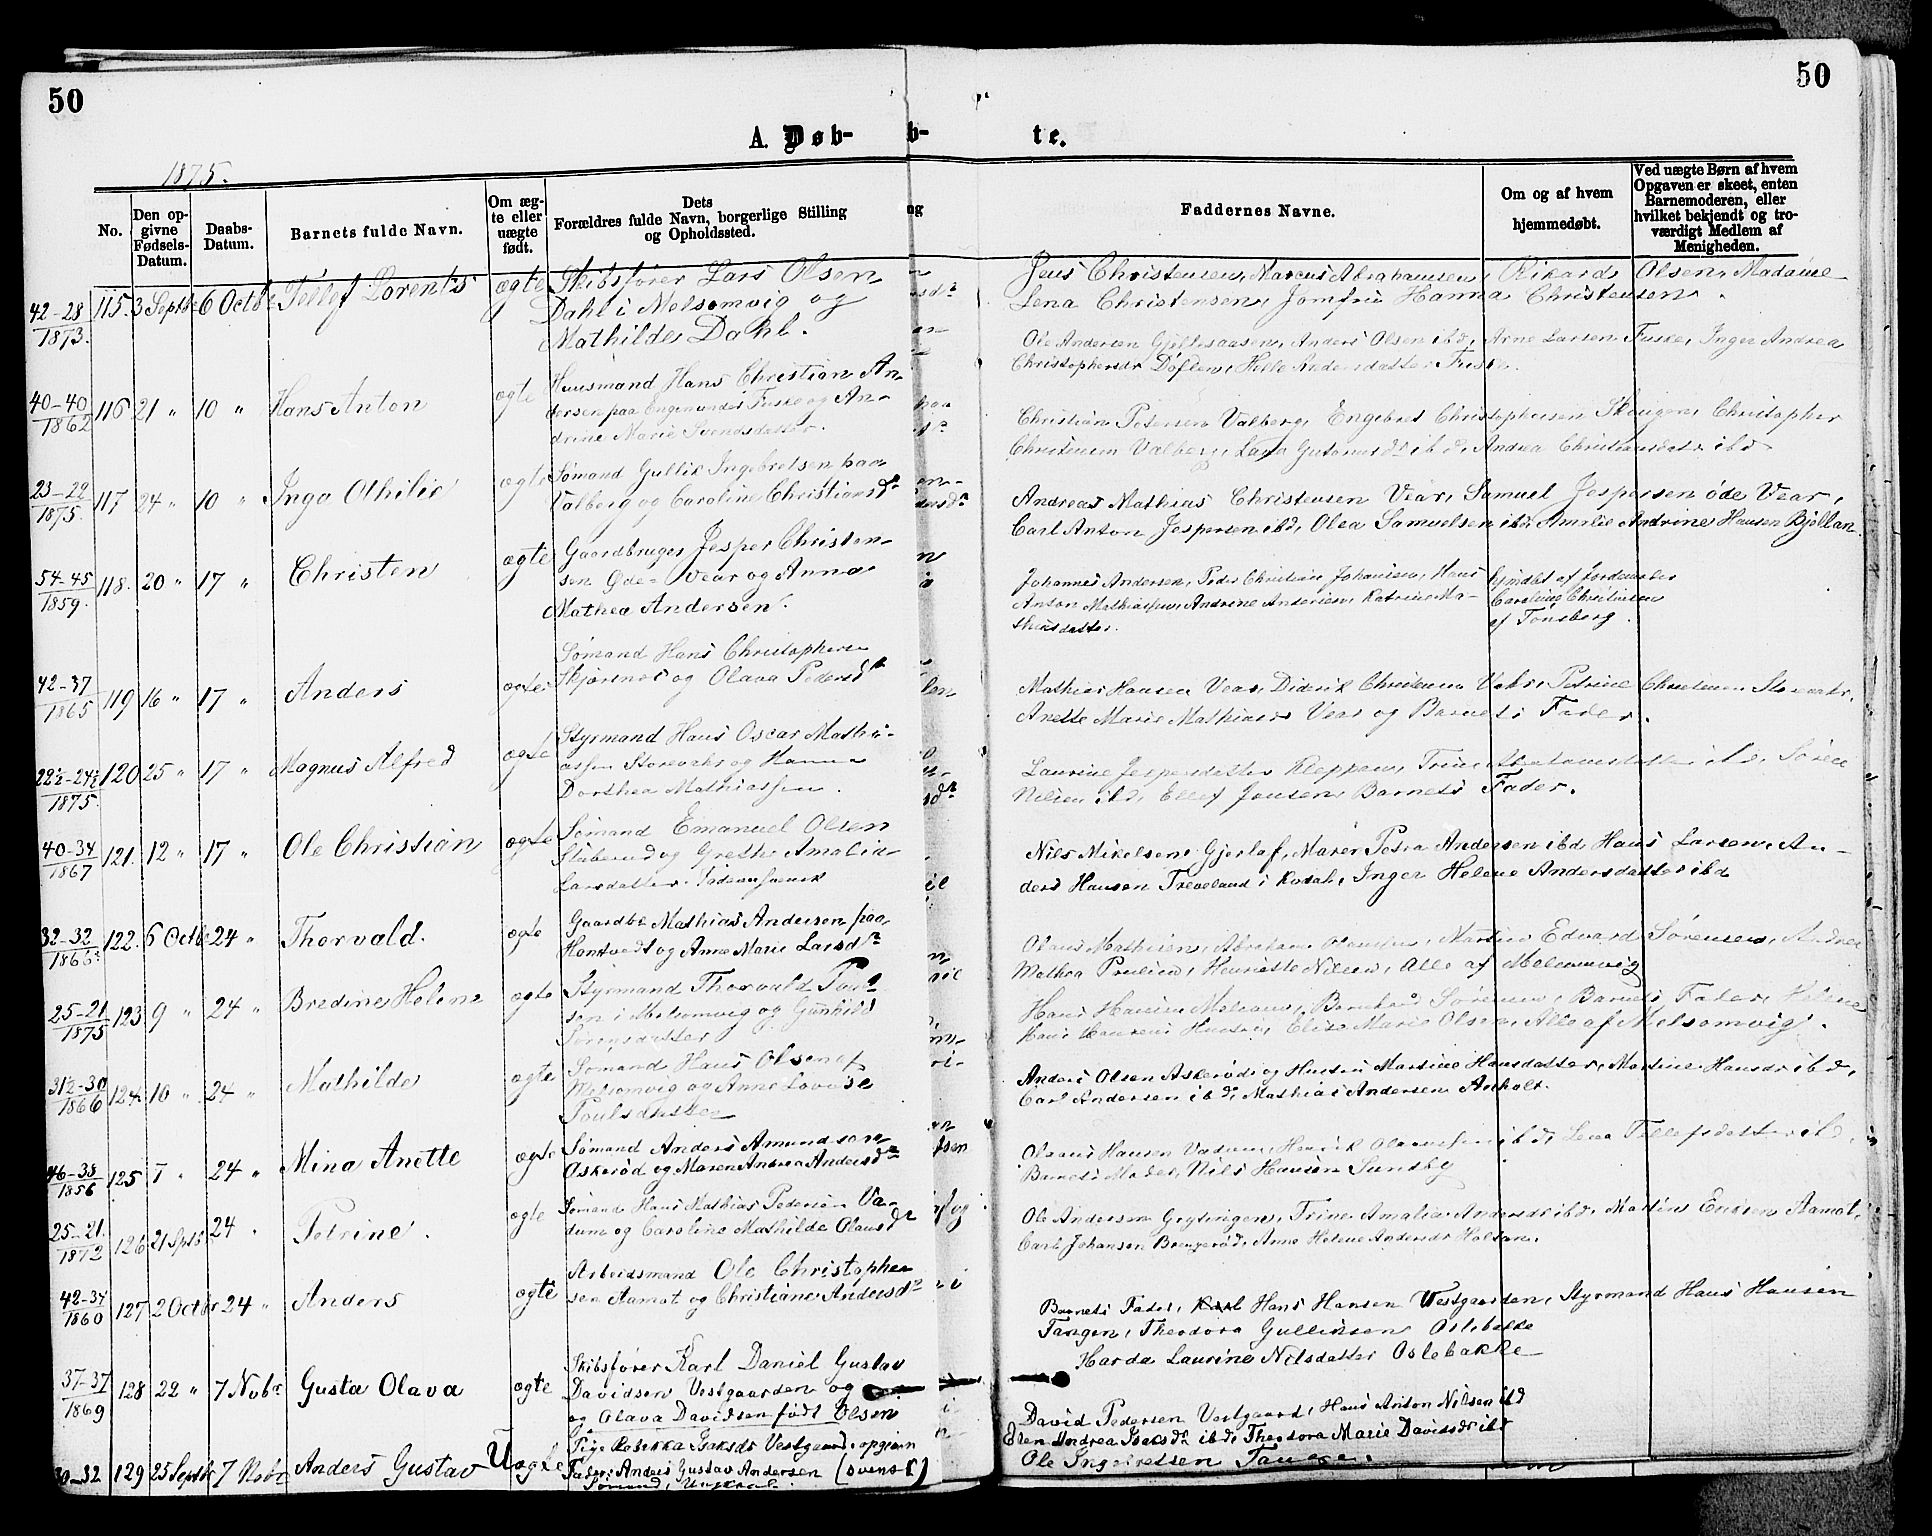 50
50
A. Døb-
b-
te.
1875.
No.
Den op-
givne
Fødsels-
Datum.
Daabs-
Datum.
Barnets fulde Navn.
Om æg-
te eller
uægte
født.
Dets
Forældres fulde Navn, borgerlige Stilling
og Opholdssted.
og
Faddernes Navne.
Om og af hvem
hjemmedøbt.
Ved uægte Børn af hvem
Opgaven er skeet, enten
Barnemoderen, eller
hvilket bekjendt og tro-
værdigt Medlem af
Menigheden.
42-28
1873.
115. 3 Septbr 6 Octbr Tellef Lorents ægte Skibsfører Lars Olsen
Dahl i Melsomvig og
Mathilde Dahl.
Jens Christensen, Marcus Abrahamsen, Rikard Olsen, Madame
Lena Christensen, Jomfru Hanna Christensen.
40-40
1862
116 21 " 10 " Hans Anton ægte Huusmand Hans Christian An-
dersen paa Engen under Fuske og An-
drine Marie Svendsdatter.
Ole Andersen Gjellesaasen, Anders Olsen ibd, Arne Larsen Fuske, Inger Andrea
Christophersdr Døflen, Helle Andersdatter Fuske.
23-22
1875.
117 24 " 10 " Inga Othilie ægte Sømand Gullik Ingebretsen paa
Valberg og Caroline Christiansdr
Christian Petersen Valberg, Engebret Christophersen Skougen, Christopher
Christensen Valberg, Lava ibd, Andrea Christiansdatr ibd
54-45
1859.
118. 20 " 17 " Christen ægte Gaardbruger Jesper Christen-
sen Øde-Vear og Anna
Mathea Andersen.
Andreas Mathias Christensen Vear, Samuel Jespersen Øde Vear,
Carl Anton Jespersen ibd, Olea Samuelsen ibd, Amalie Andrine Hansen Bjelland
42-37
1865
119 16 " 17 " Anders ægte Sømand Hans Christophersen
Skjærsnes og Olava Pedersdr
Johannes Andersen, Peder Christian Johansen, Hans
Anton Mathiassen, Andrine Andersen, Katrine Ma-
thisdatter.
af Jordemoder
Caroline Christensen
af Tønsberg.
22½-24½
1875.
120 25 " 17 " Magnus Alfred ægte Styrmand Hans Oscar Mathi-
assen Storevahr og Hanna
Dorthea Mathiassen.
Mathias Hansen Vear, Diderik Christensen Vahr, Petrine Christensen Storevahr,
Anette Marie Mathiasdr Vear og Barnets Fader.
40-34
1867
121. 12 " 17 " Ole Christian ægte Sømand Emanuel Olsen
Stubrud og Grethe Amalia
Larsdatter.
Laurine Jespersdatter Kleppan, Trine ibd, Søren
Nilsen ibd, Ellef Jensen, Barnets Fader.
32-32
1866.
122. 6 Octbr 24 " Thorvald. ægte Gaardbr Mathias Andersen paa
Hontvedt og Anne Marie Larsdr
Nils Mikelsen Gjerlaf, Maren Petra Andersen ibd, Hans Larsen, An-
ders Hansen Treveland i Kodal, Inger Helene Andersdatter ibd
25-21
1875
123 9 " 24 " Bredine Helene ægte Styrmand Thorvald Paul-
sen i Melsomvig og Gunhild
Sørensdatter
Olaus Mathisen, Abraham Olaussen, Martin Edvard Sørensen, Andrea
Mathea Poulsen, Henriette Nilsen, Alle af Melsomvig
31½-30
1866
124. 10 " 24 " Mathilde ægte Sømand Hans Olsen af
Melsomvig og Anne Lovise
Poulsdatter
Hans Hansen Melsom, Bernhard Sørensen, Barnets Fader, Helene
Hans Hansens Hustru, Elise Marie Olsen, Alle af Melsomvig.
46-38
1856
125 7 " 24 " Mina Anette ægte Sømand Anders Amundsen
Oskerød og Maren Andrea Andersdr
Anders Olsen Askerød og Hustru Martine Hansdatter, Martine Hansdr ibd,
Carl Andersen ibd, Mathias Andersen Anholt.
25-21.
1872
126 21 Septb 24 " Petrine. ægte Sømand Hans Mathias Pedersen Va-
dum og Caroline Mathilde Olausdr
Olaus Hansen Vadum, Henrik Olaussen ibd, Lena Tellefsdatter ibd,
Barnets Moder, Nils Hansen Sundby
42-34
1860
127 2 Octbr 24 " Anders ægte Arbeidsmand Ole Christopher-
sen Aamot og Christiane Andersdr
Ole Andersen Grytingen, Trine Amalia Andersdr ibd, Martin Eriksen Aamot,
Carl Johansen Brengerød, Anne Helene Andersdr Holtan.
37-37
1869
128 22 " 7 Nobr Gusta Olava ægte Skibsfører Karl Daniel Gustav
Davidsen Vestgaarden og
og Olava Davidsen født Olsen
Barnets Fader, Hans Hansen Vestgaarden, Styrmand Hans Hansen
Tangen, Theodora Gulliksen Oslebakke
Harda Laurine Nilsdatter Oslebakke
30-32 129 25 Septbr 7 Nobr Anders Gustav Uægte Pige Rebekka Isaksdr Vestgaard, opgiven
Fader: Anders Gustav Andersen (svensk)
Sømand, Ungkarl.
David Pedersen Vestgaard, Hans Anton Nilsen ibd
Elen Andrea Isaksdr ibd, Theodora Marie Davidsdr ibd
Ole Ingebretsen Tangen.